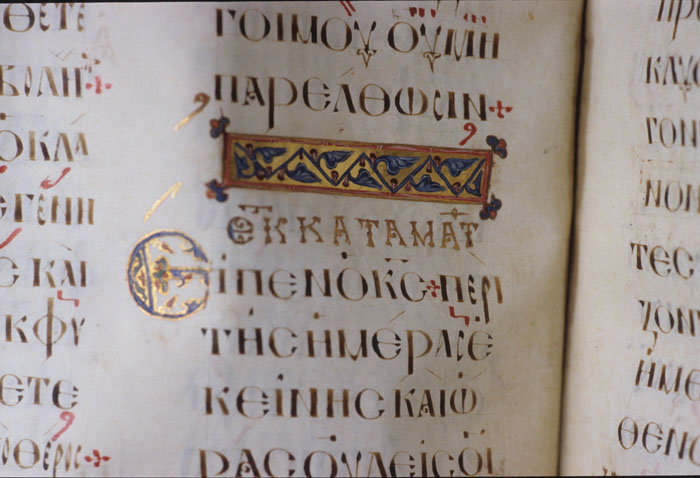 ΘΕΤΕ
ΒΟΛΗ+
ΟΚΛΑ
ΓΕΝΗ
CΚΑΙ
ΚΦΥ
ΕΤΕ
ΘΕΡΟC+
ΓΟΙΜΟΥ ΟΥΜΗ
ΠΑΡΕΛΘΩCΙΝ+
ΕΚ ΚΑΤΑ ΜΑΤ
ΕΙΠΕΝ Ο ΚC+ΠΕΡΙ
ΤΗC ΗΜΕΡΑC Ε
ΚΕΙΝΗC ΚΑΙ Ω
ΡΑC ΟΥΔΕΙC ΟΙ
ΚΛΥ
ΓΟΝ
ΝΟΗ
ΤΕC
ΖΟΝ
ΗΜΕ
ΘΕΝ